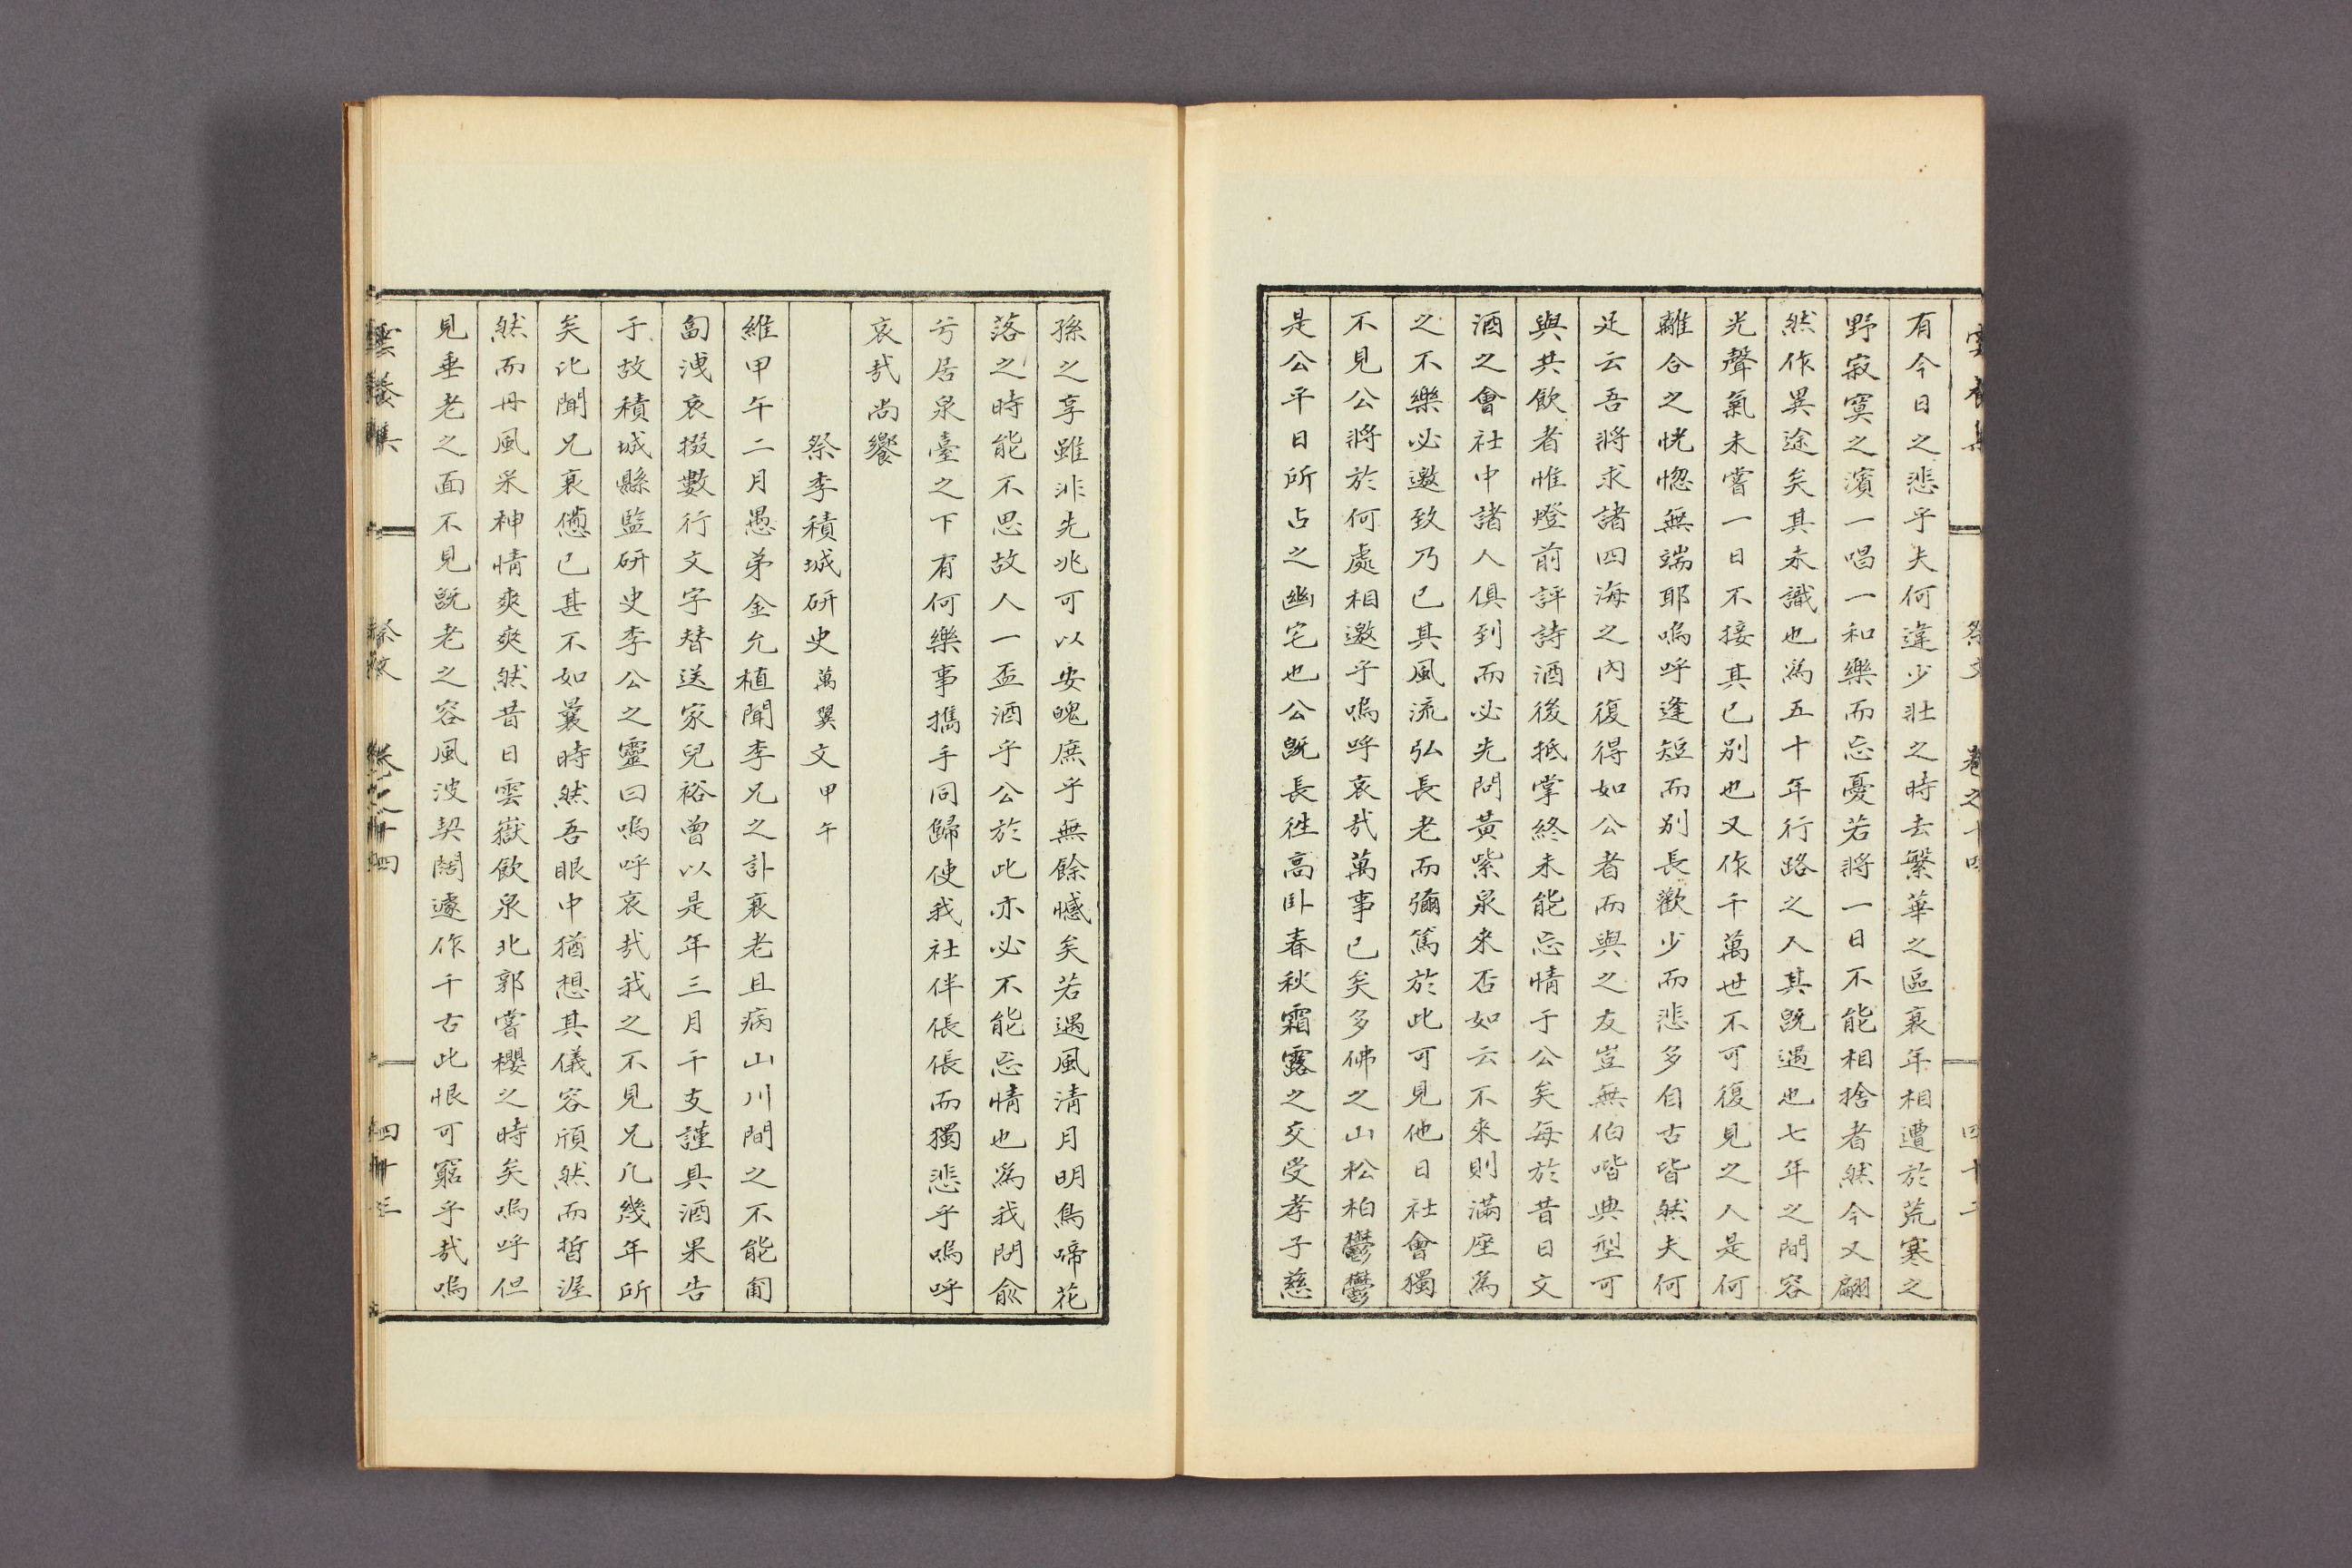 有今日之悲乎夫何違少壯之時去繁華之區衰年相遭於荒寒之
野寂寞之濱一唱一和樂而忘憂若將一日不能相捨者然今又翩
然作異途矣其未識也爲五十年行路之人其旣遇也七年之間容
光聲氣未嘗一日不接其已別也又作千萬世不可復見之人是何
離合之恍惚無端耶嗚呼逢短而別長歡少而悲多自古皆然夫何
足云吾將求諸四海之內復得如公者而與之友豈無伯喈典型可
與共飮者惟燈前評詩酒後抵掌終未能忘情于公矣每於昔日文
酒之會社中諸人俱到而必先問黃紫泉來否如云不來則滿座爲
之不樂必邀致乃已其風流弘長老而彌篤於此可見他日社會獨
不見公將於何處相邀乎嗚呼哀哉萬事已矣多佛之山松柏鬱鬱
是公平日所占之幽宅也公旣長往高臥春秋霜露之交受孝子慈
雲養集
祭文
卷之十四
四十三
孫之享雖非先兆可以安魄庶乎無餘憾矣若遇風淸月明鳥啼花
落之時能不思故人一盃酒乎公於此亦必不能忘情也爲我問兪
兮居泉臺之下有何樂事携手同歸使我社伴倀倀而獨悲乎嗚呼
哀哉尚饗
祭李積城研史萬翼文甲午
維甲午二月愚弟金允植聞李兄之訃衰老且病山川間之不能匍
匐洩哀掇數行文字替送家兒裕曾以是年三月干支謹具酒果告
于故積城縣監硏史李公之靈曰嗚呼哀哉我之不見兄凡幾年所
矣比聞兄衰憊已甚不如曩時然吾眼中猶想其儀容頎然而晳渥
然而丹風采神情爽爽然昔日雲嶽飮泉北郭嘗櫻之時矣嗚呼但
見垂老之面不見旣老之容風波契闊遽作千古此恨可窮乎哉嗚
雲養集
祭文
卷之十四
四十三